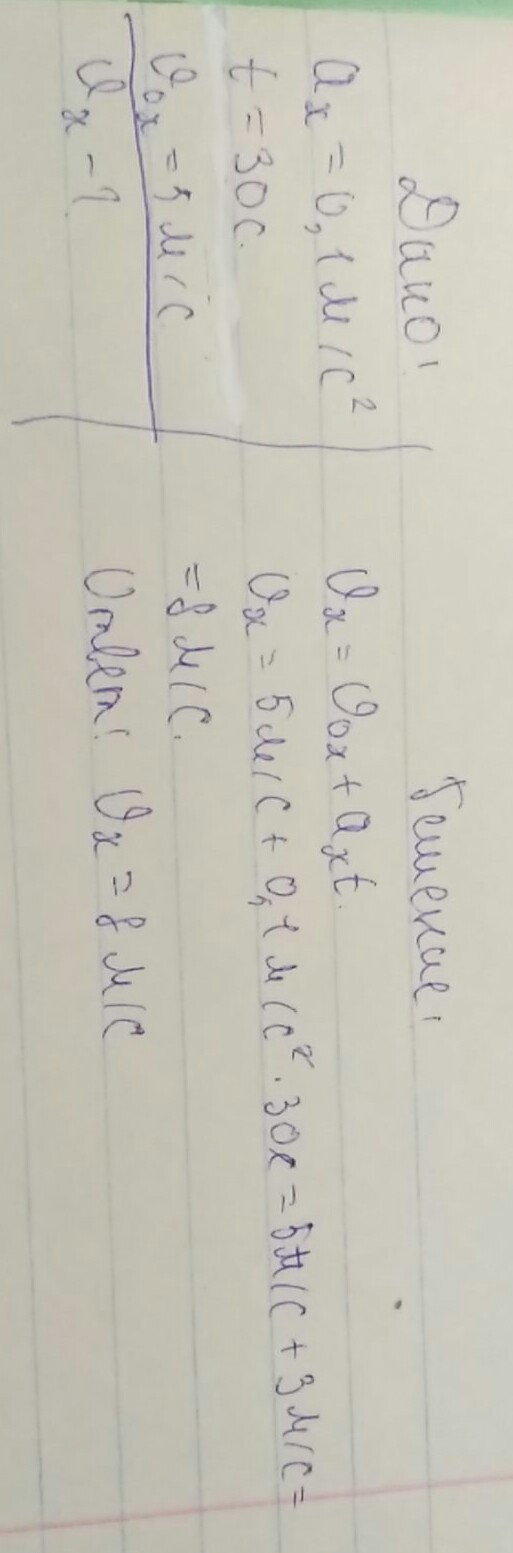 Дано:
aₓ = 0,1 м/с²
t = 30с.
υ₀ₓ = 5 м/с
υₓ - ?
Решение:
υₓ = υ₀ₓ + aₓt.
υₓ = 5м/с + 0,1 м/с² · 30с = 5м/с + 3м/с =
= 8 м/с.
Ответ: υₓ = 8 м/с